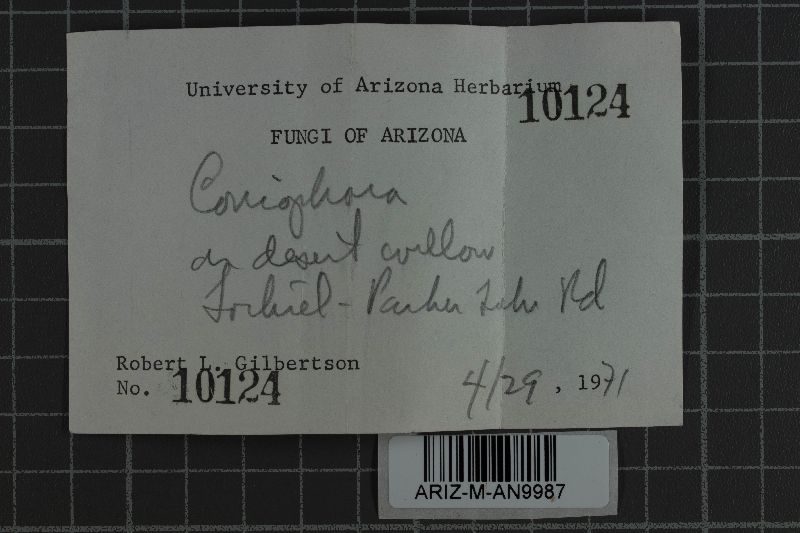 University of Arizona Herbarium
10124
FUNGI OF ARIZONA
Coniophora
on desert willow
Lochiel - Parker Lake Rd
Robert L. Gilbertson
No. 10124
4/29, 1971
ARIZ-M-AN9987